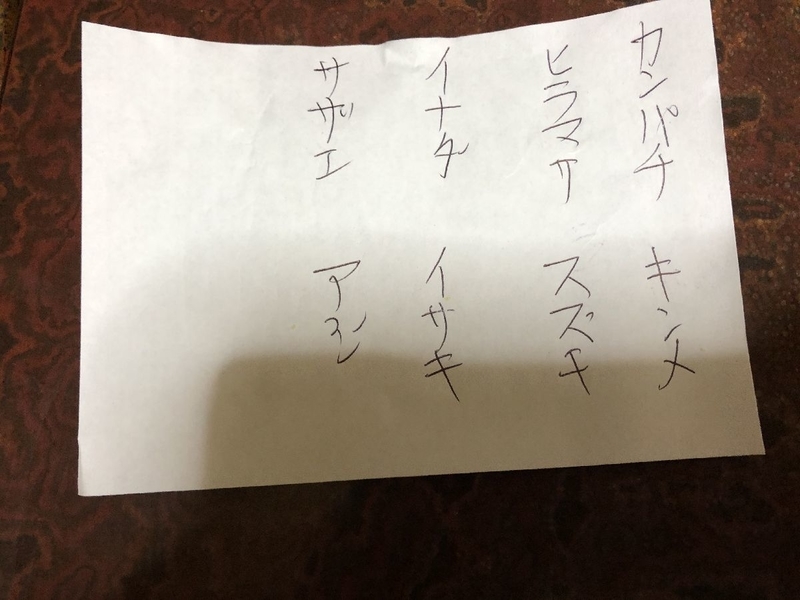 カンパチ キンメ
ヒラマサ スズキ
イナダ イサキ
サザエ アジ